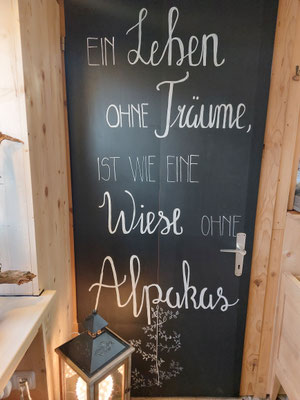 EIN Leben
OHNE Träume,
IST WIE EINE
Wiese OHNE
Alpakas